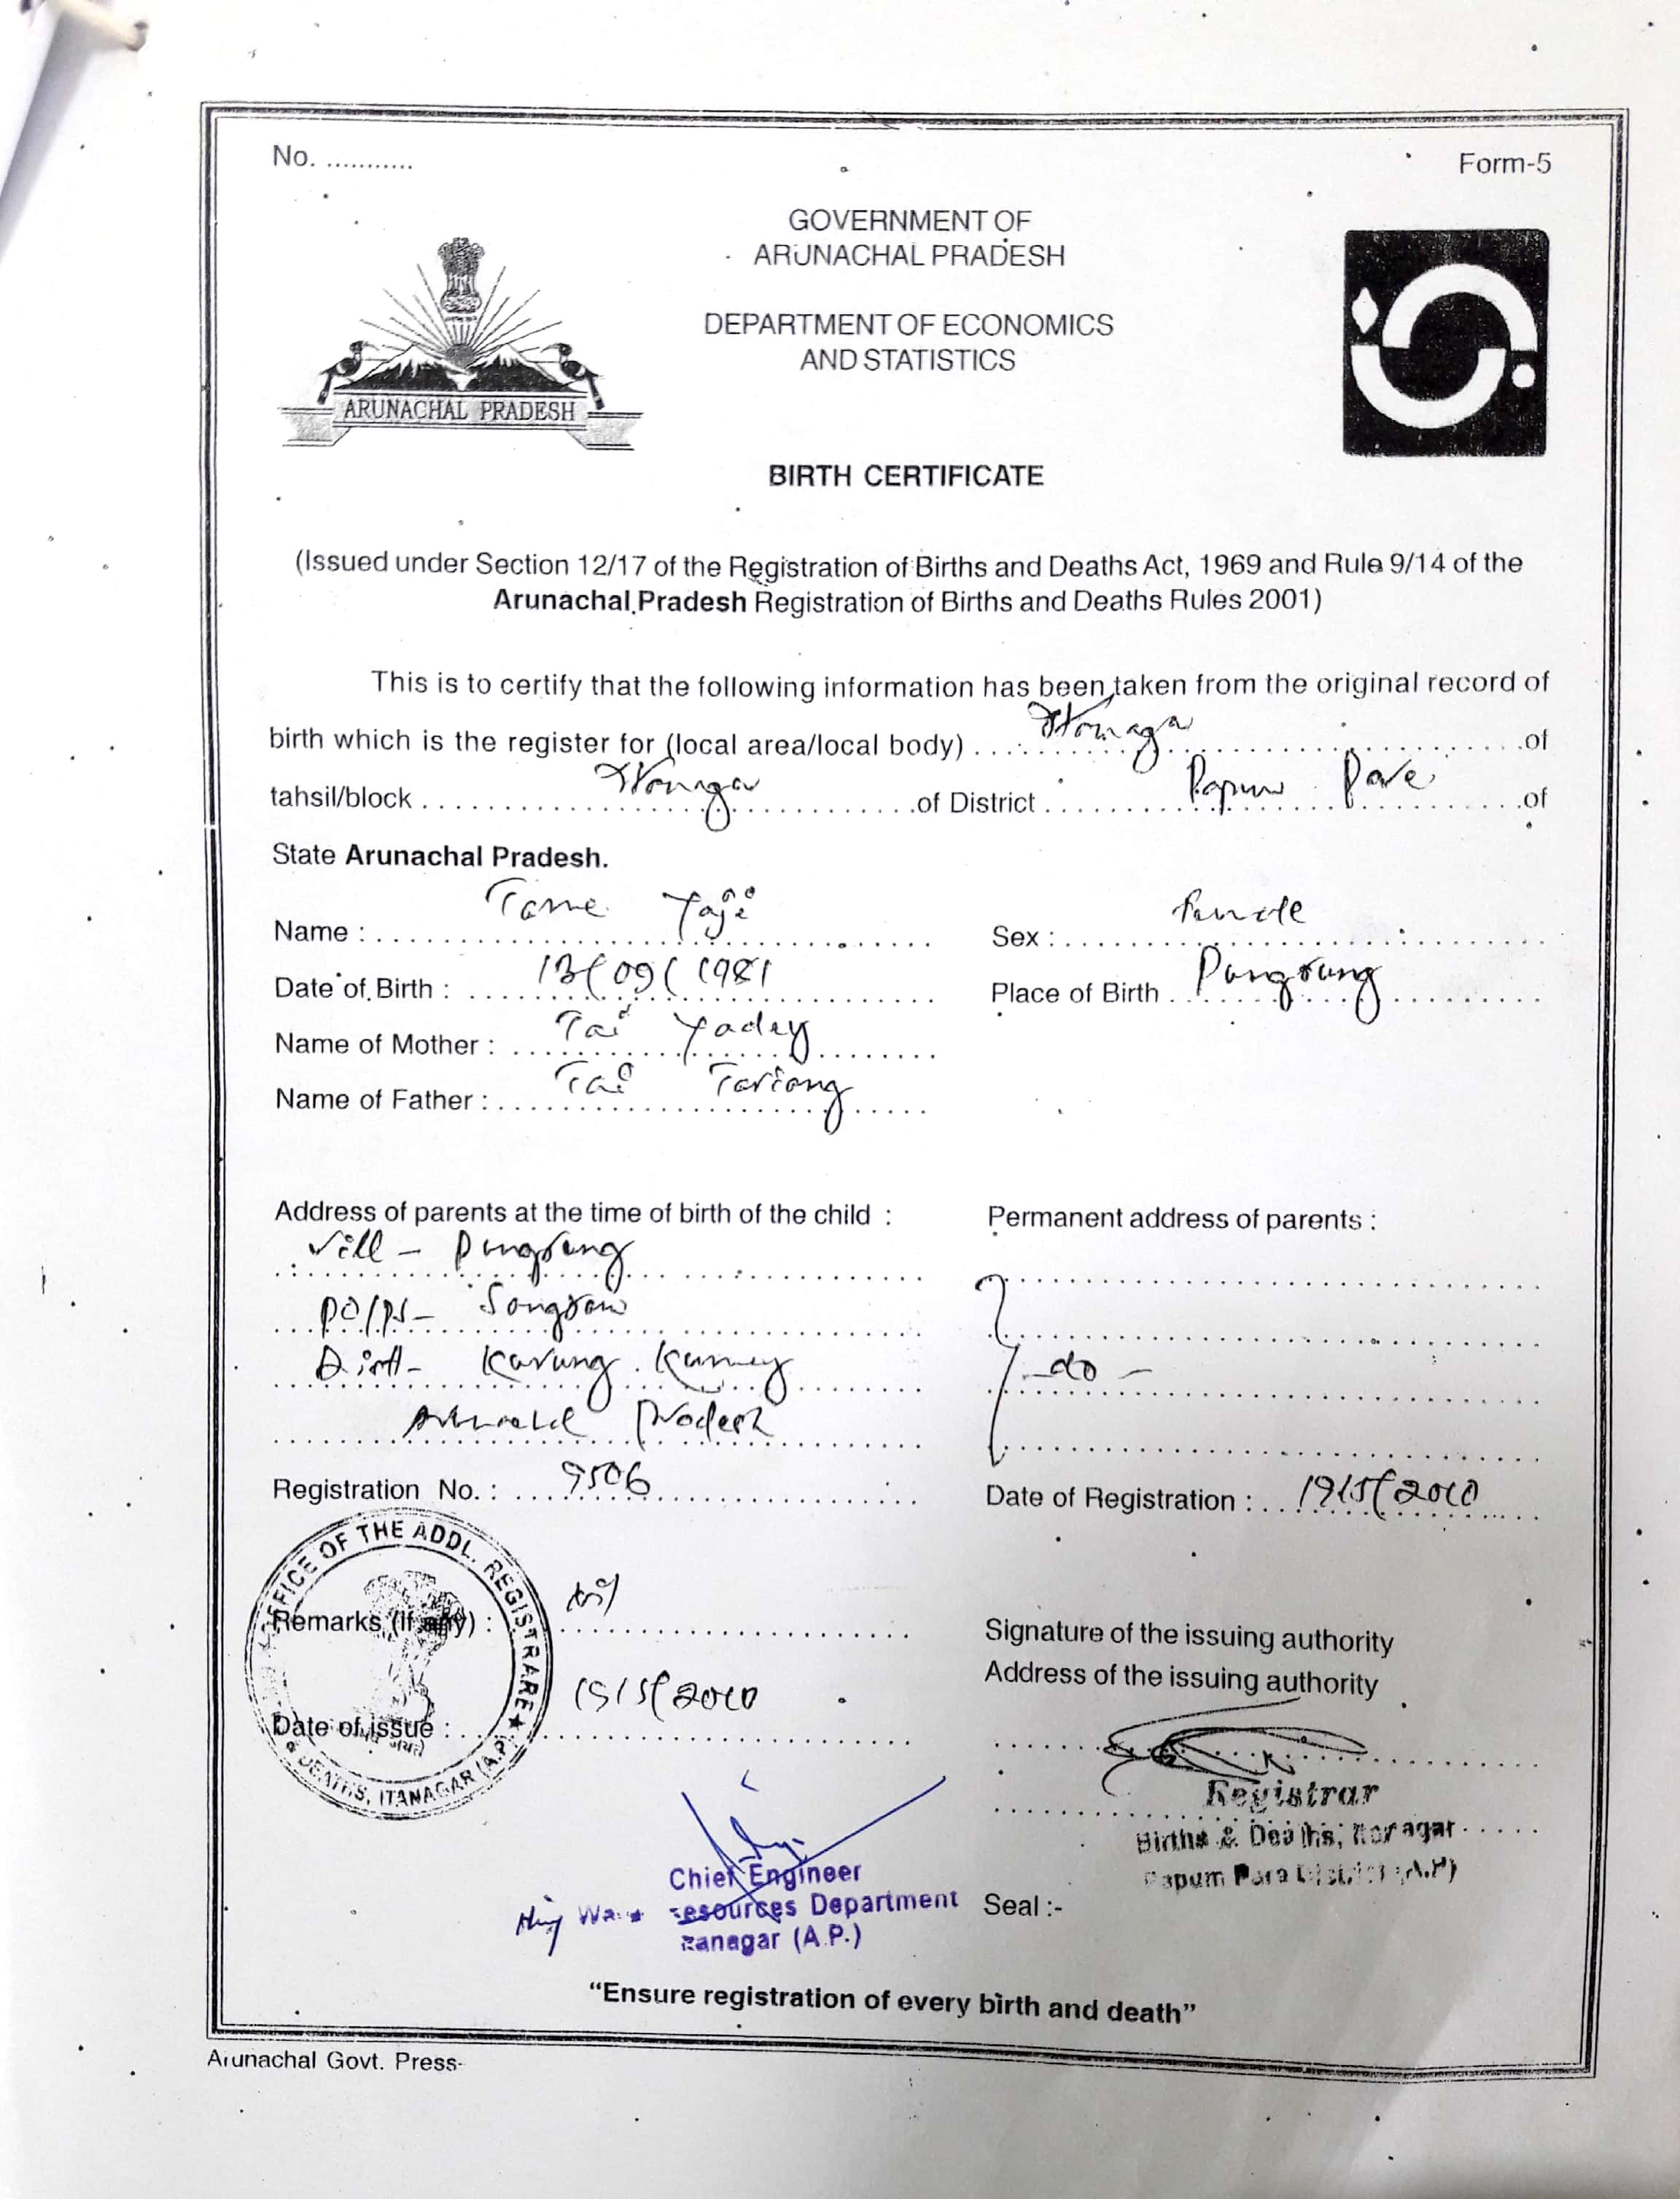 No. ...........
Form-5
GOVERNMENT OF
ARUNACHAL PRADESH
DEPARTMENT OF ECONOMICS
AND STATISTICS
ARUNACHAL PRADESH
BIRTH CERTIFICATE
(Issued under Section 12/17 of the Registration of Births and Deaths Act, 1969 and Rule 9/14 of the
Arunachal Pradesh Registration of Births and Deaths Rules 2001)
This is to certify that the following information has been taken from the original record of
birth which is the register for (local area/local body) ... of
tahsil/block ... of District ... Papum Pare ... of
State Arunachal Pradesh.
Name : Tame Yaji
Sex : Female
Date of Birth : 13/09/1981
Place of Birth
Name of Mother : Tai Yadey
Name of Father : Tai
Address of parents at the time of birth of the child :
Permanent address of parents :
Vill -
PO/PS-
Distt- Kurung Kumey
-do-
Arunachal Pradesh
Registration No. : 9506
Date of Registration : 19/5/2010
OFFICE OF THE ADDL. REGISTRARE ★
DEATHS, ITANAGAR (A.P)
Remarks (if any) :
Signature of the issuing authority
Address of the issuing authority
Date of issue : 19/5/2010
Registrar
Births & Deaths, Itanagar
Papum Pare District (A.P)
Chief Engineer
Resources Department
Itanagar (A.P.)
Seal :-
“Ensure registration of every birth and death”
Arunachal Govt. Press-